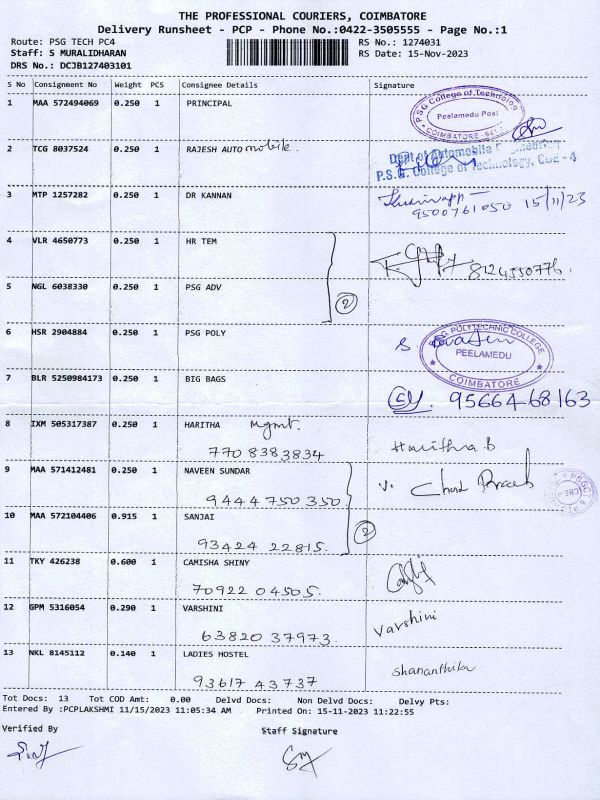 THE PROFESSIONAL COURIERS, COIMBATORE
Delivery Runsheet - PCP - Phone No.:0422-3505555 - Page No.:1
Route: PSG TECH PC4 RS No.: 1274031
Staff: S MURALIDHARAN RS Date: 15-Nov-2023
DRS No.: DCJB127403101
S No Consignment No Weight PCS Consignee Details Signature
1 MAA 572494069 0.250 1 PRINCIPAL
PSG College of Technology
Peelamedu Post
COIMBATORE
2 TCG 8037524 0.250 1 RAJESH AUTOmobile.
Dept of Automobile Engineering
P.S.G. College of Technology, CBE - 4
3 MTP 1257282 0.250 1 DR KANNAN
9500761050 15/11/23
4 VLR 4650773 0.250 1 HR TEM
8124550776.
5 NGL 6038330 0.250 1 PSG ADV
2
6 HSR 2904884 0.250 1 PSG POLY
PSG POLYTECHNIC COLLEGE
PEELAMEDU
COIMBATORE
7 BLR 5250984173 0.250 1 BIG BAGS
9566468163
8 IXM 505317387 0.250 1 HARITHA Mgmt.
770 8383834 Haritha.B
9 MAA 571412481 0.250 1 NAVEEN SUNDAR
9444750350
10 MAA 572104406 0.915 1 SANJAI
2
93424 22815.
11 TKY 426238 0.600 1 CAMISHA SHINY
70922 04505.
12 GPM 5316054 0.290 1 VARSHINI Varshini
63820 37973.
13 NKL 8145112 0.140 1 LADIES HOSTEL
93617 43737
Tot Docs: 13 Tot COD Amt: 0.00 Delvd Docs: Non Delvd Docs: Delvy Pts:
Entered By :PCPLAKSHMI 11/15/2023 11:05:34 AM Printed On: 15-11-2023 11:22:55
Verified By Staff Signature